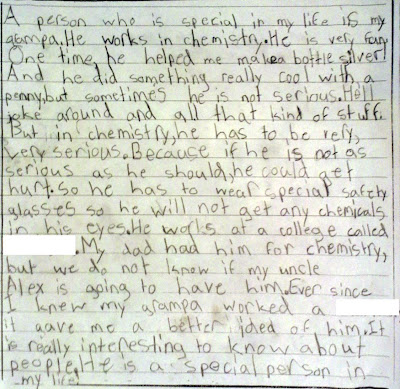 A person who is special in my life is my
grampa.He works in chemistry.He is very funy
One time, he helped me makea bottle silver!
And he did something really cool with a
penny,but sometimes he is not serious.Hell
joke around and all that kind of stuff.
But in chemistry,he has to be very,
very serious.Because if he is not as
serious as he should,he could get
hurt.So he has to wear special safty
glasses so he will not get any chemicals
in his eyes.He works at a college called
.My dad had him for chemistry,
but we do not know if my uncle
Alex is going to have him.Ever since
I knew my grampa worked a
it gave me a better idea of him.It
is really interesting to know about
people.He is a special person in
my life!